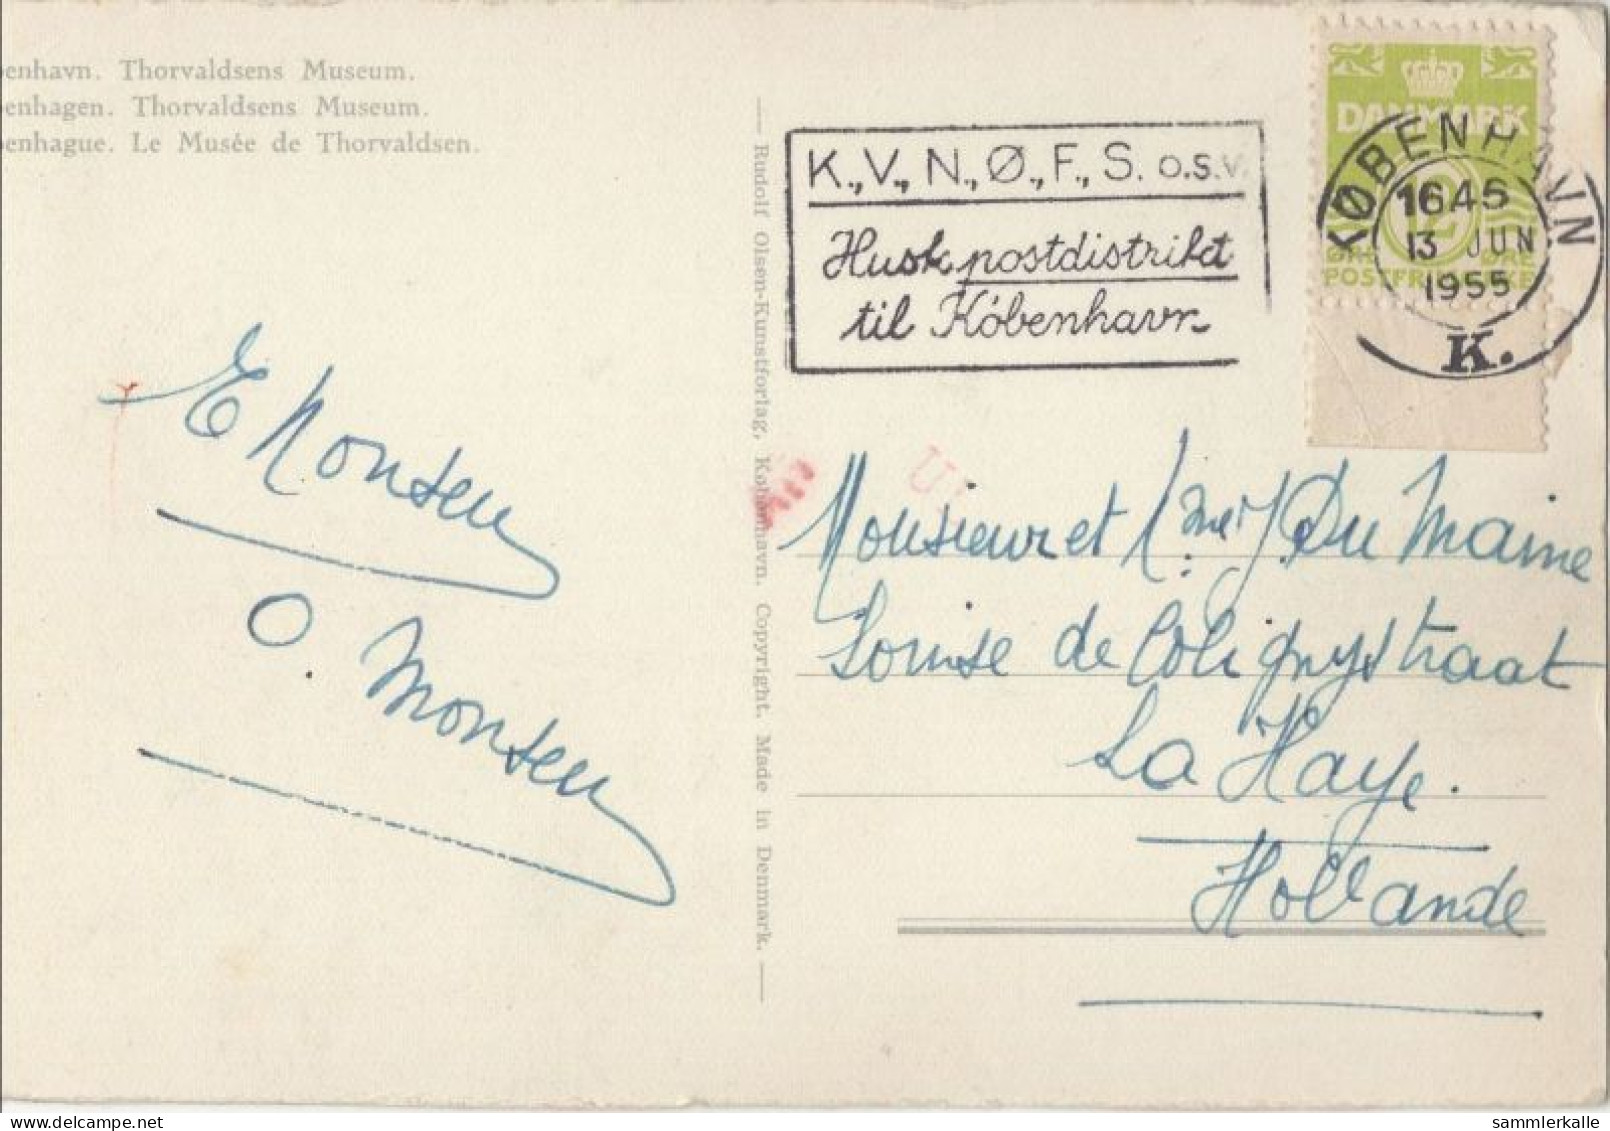 benhavn. Thorvaldsens Museum.
benhagen. Thorvaldsens Museum.
benhague. Le Musée de Thorvaldsen.
E Monsen
O. Monsen
— Rudolf Olsen-Kunstforlag, København. Copyright. Made in Denmark. —
K., V., N., Ø., F., S. o.s.v.
Husk postdistrikt
til København
DANMARK
12
ØRE ØRE
POSTFRIMÆRKE
KØBENHAVN
1645
13 JUN
1955
K.
Monsieur et (Mme) Du Maine
Louise de Colignystraat
La Haye.
Hollande
sammlerkalle